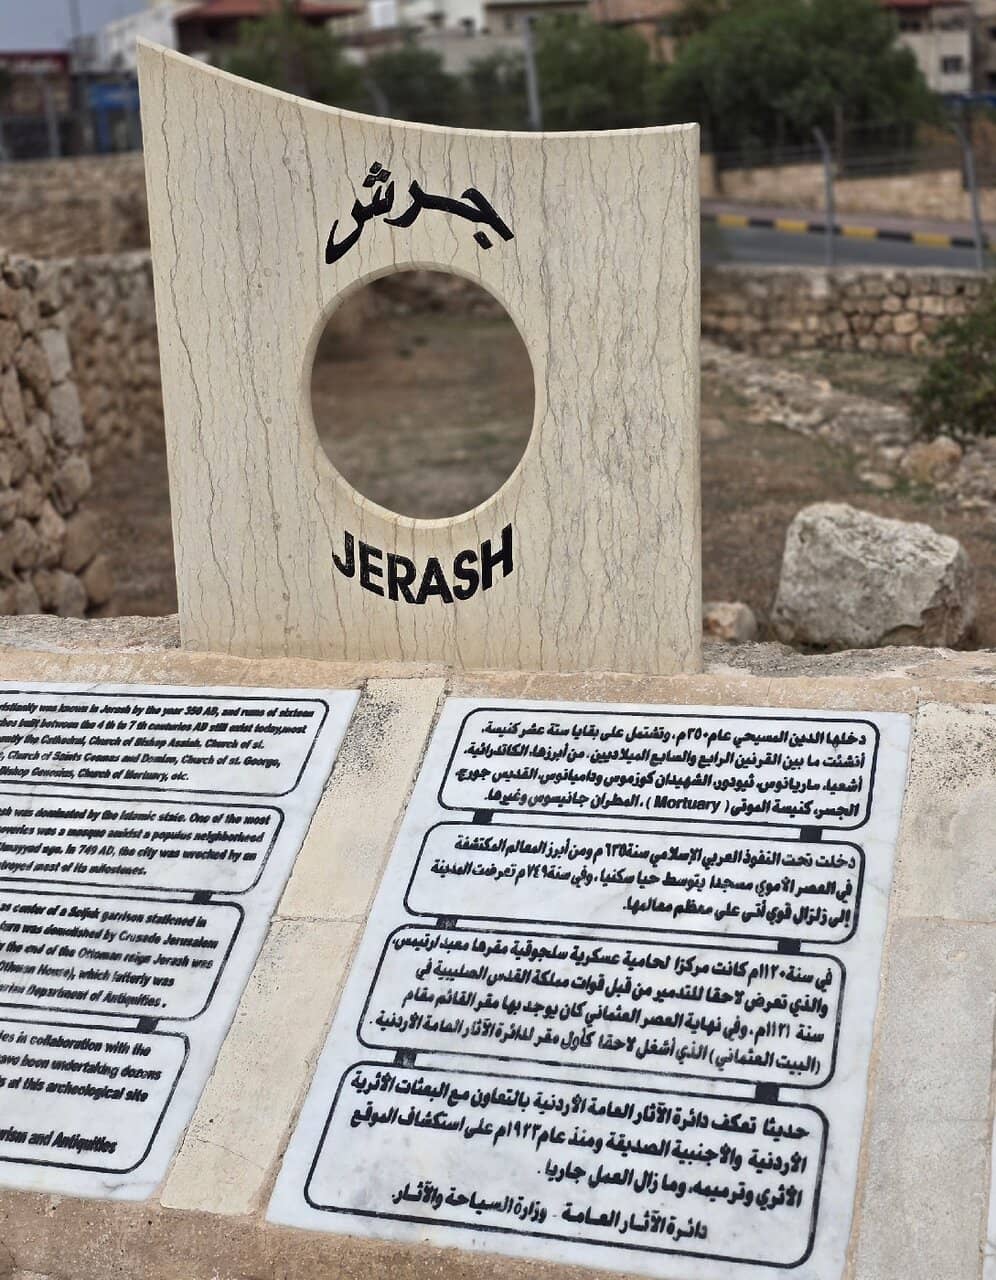 جرش
JERASH
ristianity was known in Jerash by the year 350 AD, and runs of sixteen
hes built between the 4 th to 7 th centuries AD still exist today, most
ently the Cathedral, Church of Bishop Asaiah, Church of st.
, Church of Saints Cosmas and Damian, Church of st. George,
Bishop Genesius, Church of Mortuary, etc.
ash was dominated by the Islamic state. One of the most
overies was a mosque amidst a populus neighborhood
Umayyed age. In 749 AD, the city was wrecked by an
troyed most of its milestones.
as center of a Seljuk garrison stationed in
turn was demolished by Crusade Jerusalem
y the end of the Ottoman reign Jerash was
Othman House), which latterly was
anian Department of Antiquities .
ies in collaboration with the
ave been undertaking dozens
s at this archeological site
urism and Antiquities
دخلها الدين المسيحي عام ٣٥٠م، وتشتمل على بقايا ستة عشر كنيسة،
أنشئت ما بين القرنين الرابع والسابع الميلاديين، من أبرزها، الكاتدرائية،
أشعيا، ماريانوس، ثيودور، الشهيدان كوزموس ودامیانوس، القديس جورج،
الجسر، كنيسة الموتى ( Mortuary ) ، المطران جانيسوس وغيرها.
دخلت تحت النفوذ العربي الإسلامي سنة ٦٣٥م ومن أبرز المعالم المكتشفة
في العصر الأموي مسجدا يتوسط حيا سكنيا، وفي سنة ٧٤٩م تعرضت المدينة
إلى زلزال قوي أتى على معظم معالمها.
في سنة ١١٢٠م كانت مركزا لحامية عسكرية سلجوقية مقرها معبد ارتيمس،
والذي تعرض لاحقا للتدمير من قبل قوات مملكة القدس الصليبية في
سنة ١١٢١م. وفي نهاية العصر العثماني كان يوجد بها مقر القائم مقام
(البيت العثماني) الذي أشغل لاحقا كأول مقر لدائرة الآثار العامة الأردنية .
حديثا تعكف دائرة الآثار العامة الأردنية بالتعاون مع البعثات الأثرية
الأردنية والأجنبية الصديقة ومنذ عام ١٩٢٣م على استكشاف الموقع
الأثري وترميمه، وما زال العمل جاريا .
دائرة الآثار العامة - وزارة السياحة والآثار.